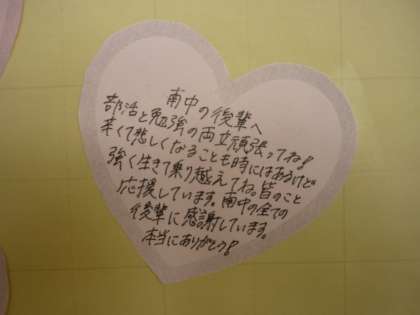 南中の後輩へ
部活と勉強の両立頑張ってね!
辛くて悲しくなることも時にはあるけど
強く生きて乗り越えてね。皆のこと
応援しています。南中の全ての
後輩に感謝しています。
本当にありがとう!